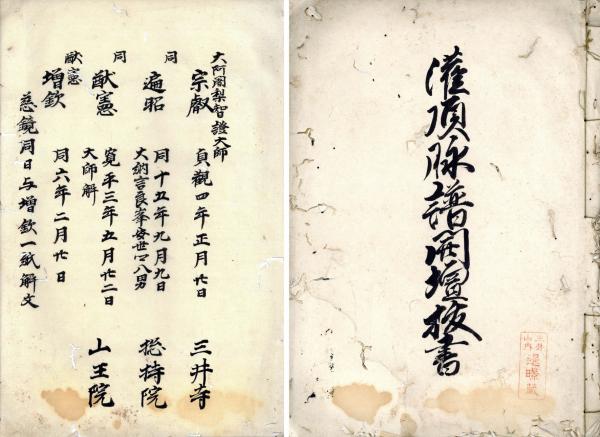 灌頂脉譜開壇抜書
三井
山内
大阿闍梨智證大師
宗叡 貞觀四年正月廿日 三井寺
同
遍昭 同十五年九月九日 捴持院
大納言良峯安世 八男
同
猷憲 寛平三年五月廿二日 山王院
大師解
猷憲
増欽 同六年二月廿日
慈鏡同日与増欽一紙解文